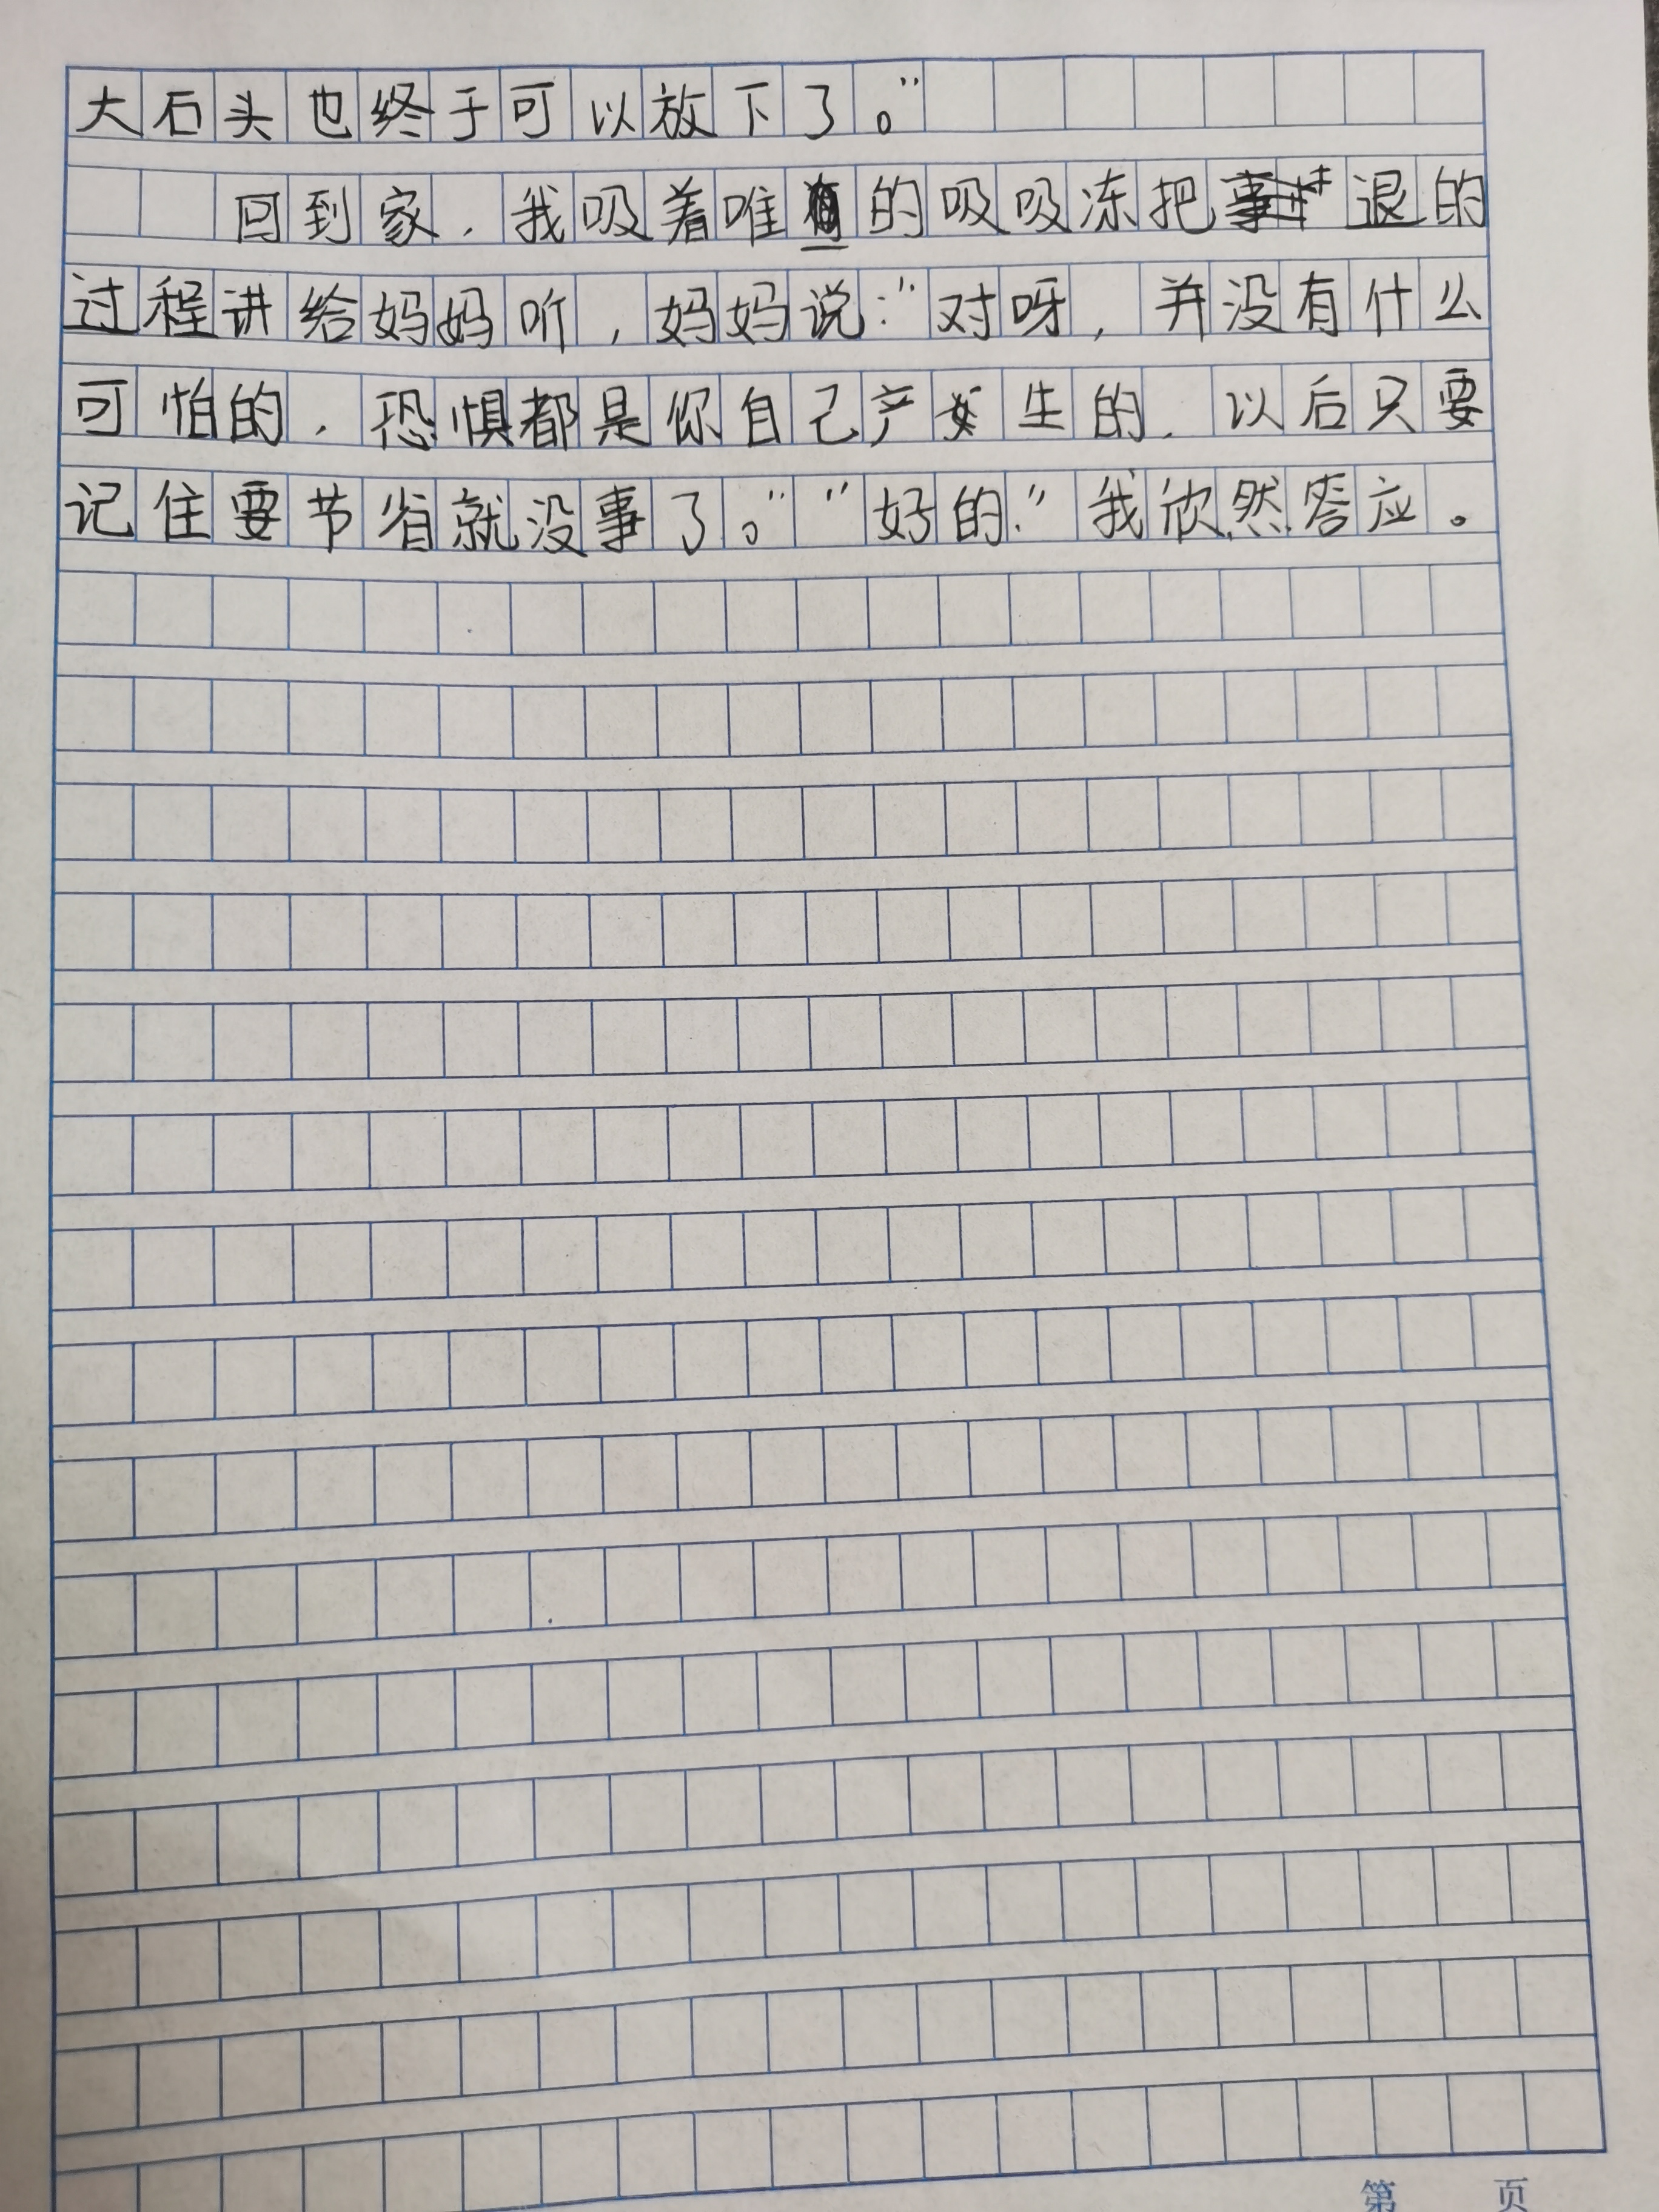 大石头也终于可以放下了。”
回到家，我吸着唯一的吸吸冻把退的
过程讲给妈妈听，妈妈说：“对呀，并没有什么
可怕的，恐惧都是你自己产生的，以后只要
记住要节省就没事了。”“好的。”我欣然答应。
第 页